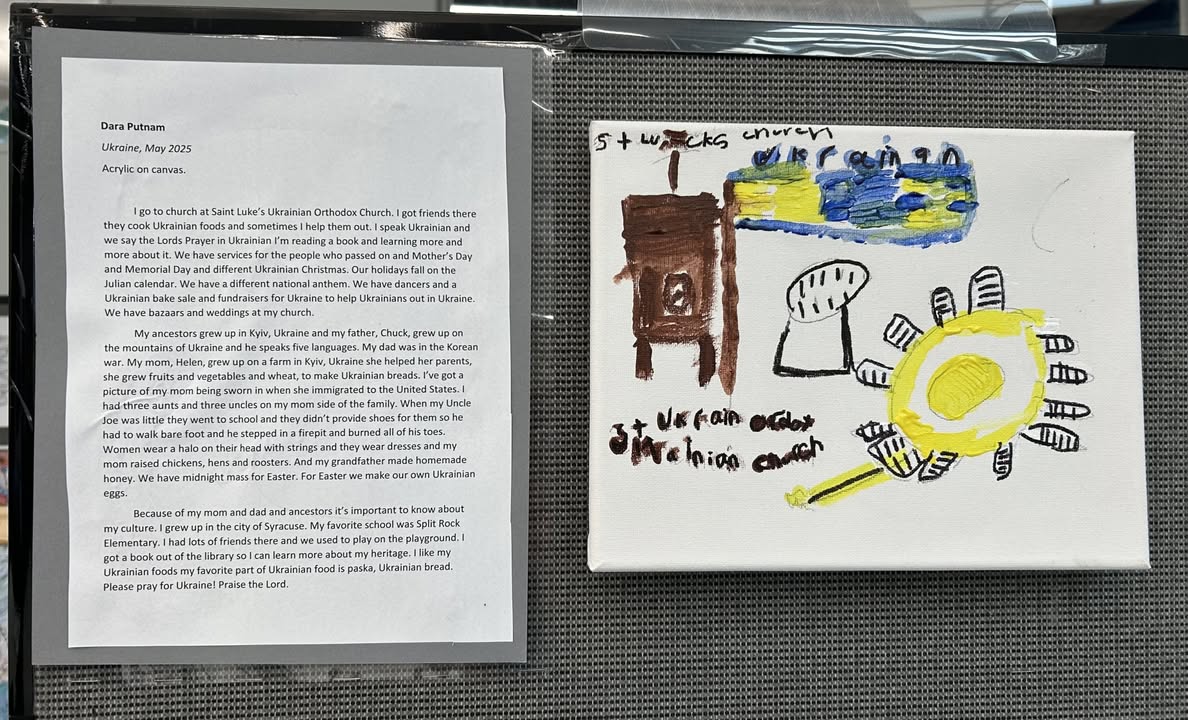 Dara Putnam
Ukraine, May 2025
Acrylic on canvas.
I go to church at Saint Luke's Ukrainian Orthodox Church. I got friends there
they cook Ukrainian foods and sometimes I help them out. I speak Ukrainian and
we say the Lords Prayer in Ukrainian I'm reading a book and learning more and
more about it. We have services for the people who passed on and Mother's Day
and Memorial Day and different Ukrainian Christmas. Our holidays fall on the
Julian calendar. We have a different national anthem. We have dancers and a
Ukrainian bake sale and fundraisers for Ukraine to help Ukrainians out in Ukraine.
We have bazaars and weddings at my church.
My ancestors grew up in Kyiv, Ukraine and my father, Chuck, grew up on
the mountains of Ukraine and he speaks five languages. My dad was in the Korean
war. My mom, Helen, grew up on a farm in Kyiv, Ukraine she helped her parents,
she grew fruits and vegetables and wheat, to make Ukrainian breads. I've got a
picture of my mom being sworn in when she immigrated to the United States. I
had three aunts and three uncles on my mom side of the family. When my Uncle
Joe was little they went to school and they didn't provide shoes for them so he
had to walk bare foot and he stepped in a firepit and burned all of his toes.
Women wear a halo on their head with strings and they wear dresses and my
mom raised chickens, hens and roosters. And my grandfather made homemade
honey. We have midnight mass for Easter. For Easter we make our own Ukrainian
eggs.
Because of my mom and dad and ancestors it's important to know about
my culture. I grew up in the city of Syracuse. My favorite school was Split Rock
Elementary. I had lots of friends there and we used to play on the playground. I
got a book out of the library so I can learn more about my heritage. I like my
Ukrainian foods my favorite part of Ukrainian food is paska, Ukrainian bread.
Please pray for Ukraine! Praise the Lord.
church
ukrainan
Ukrain
church